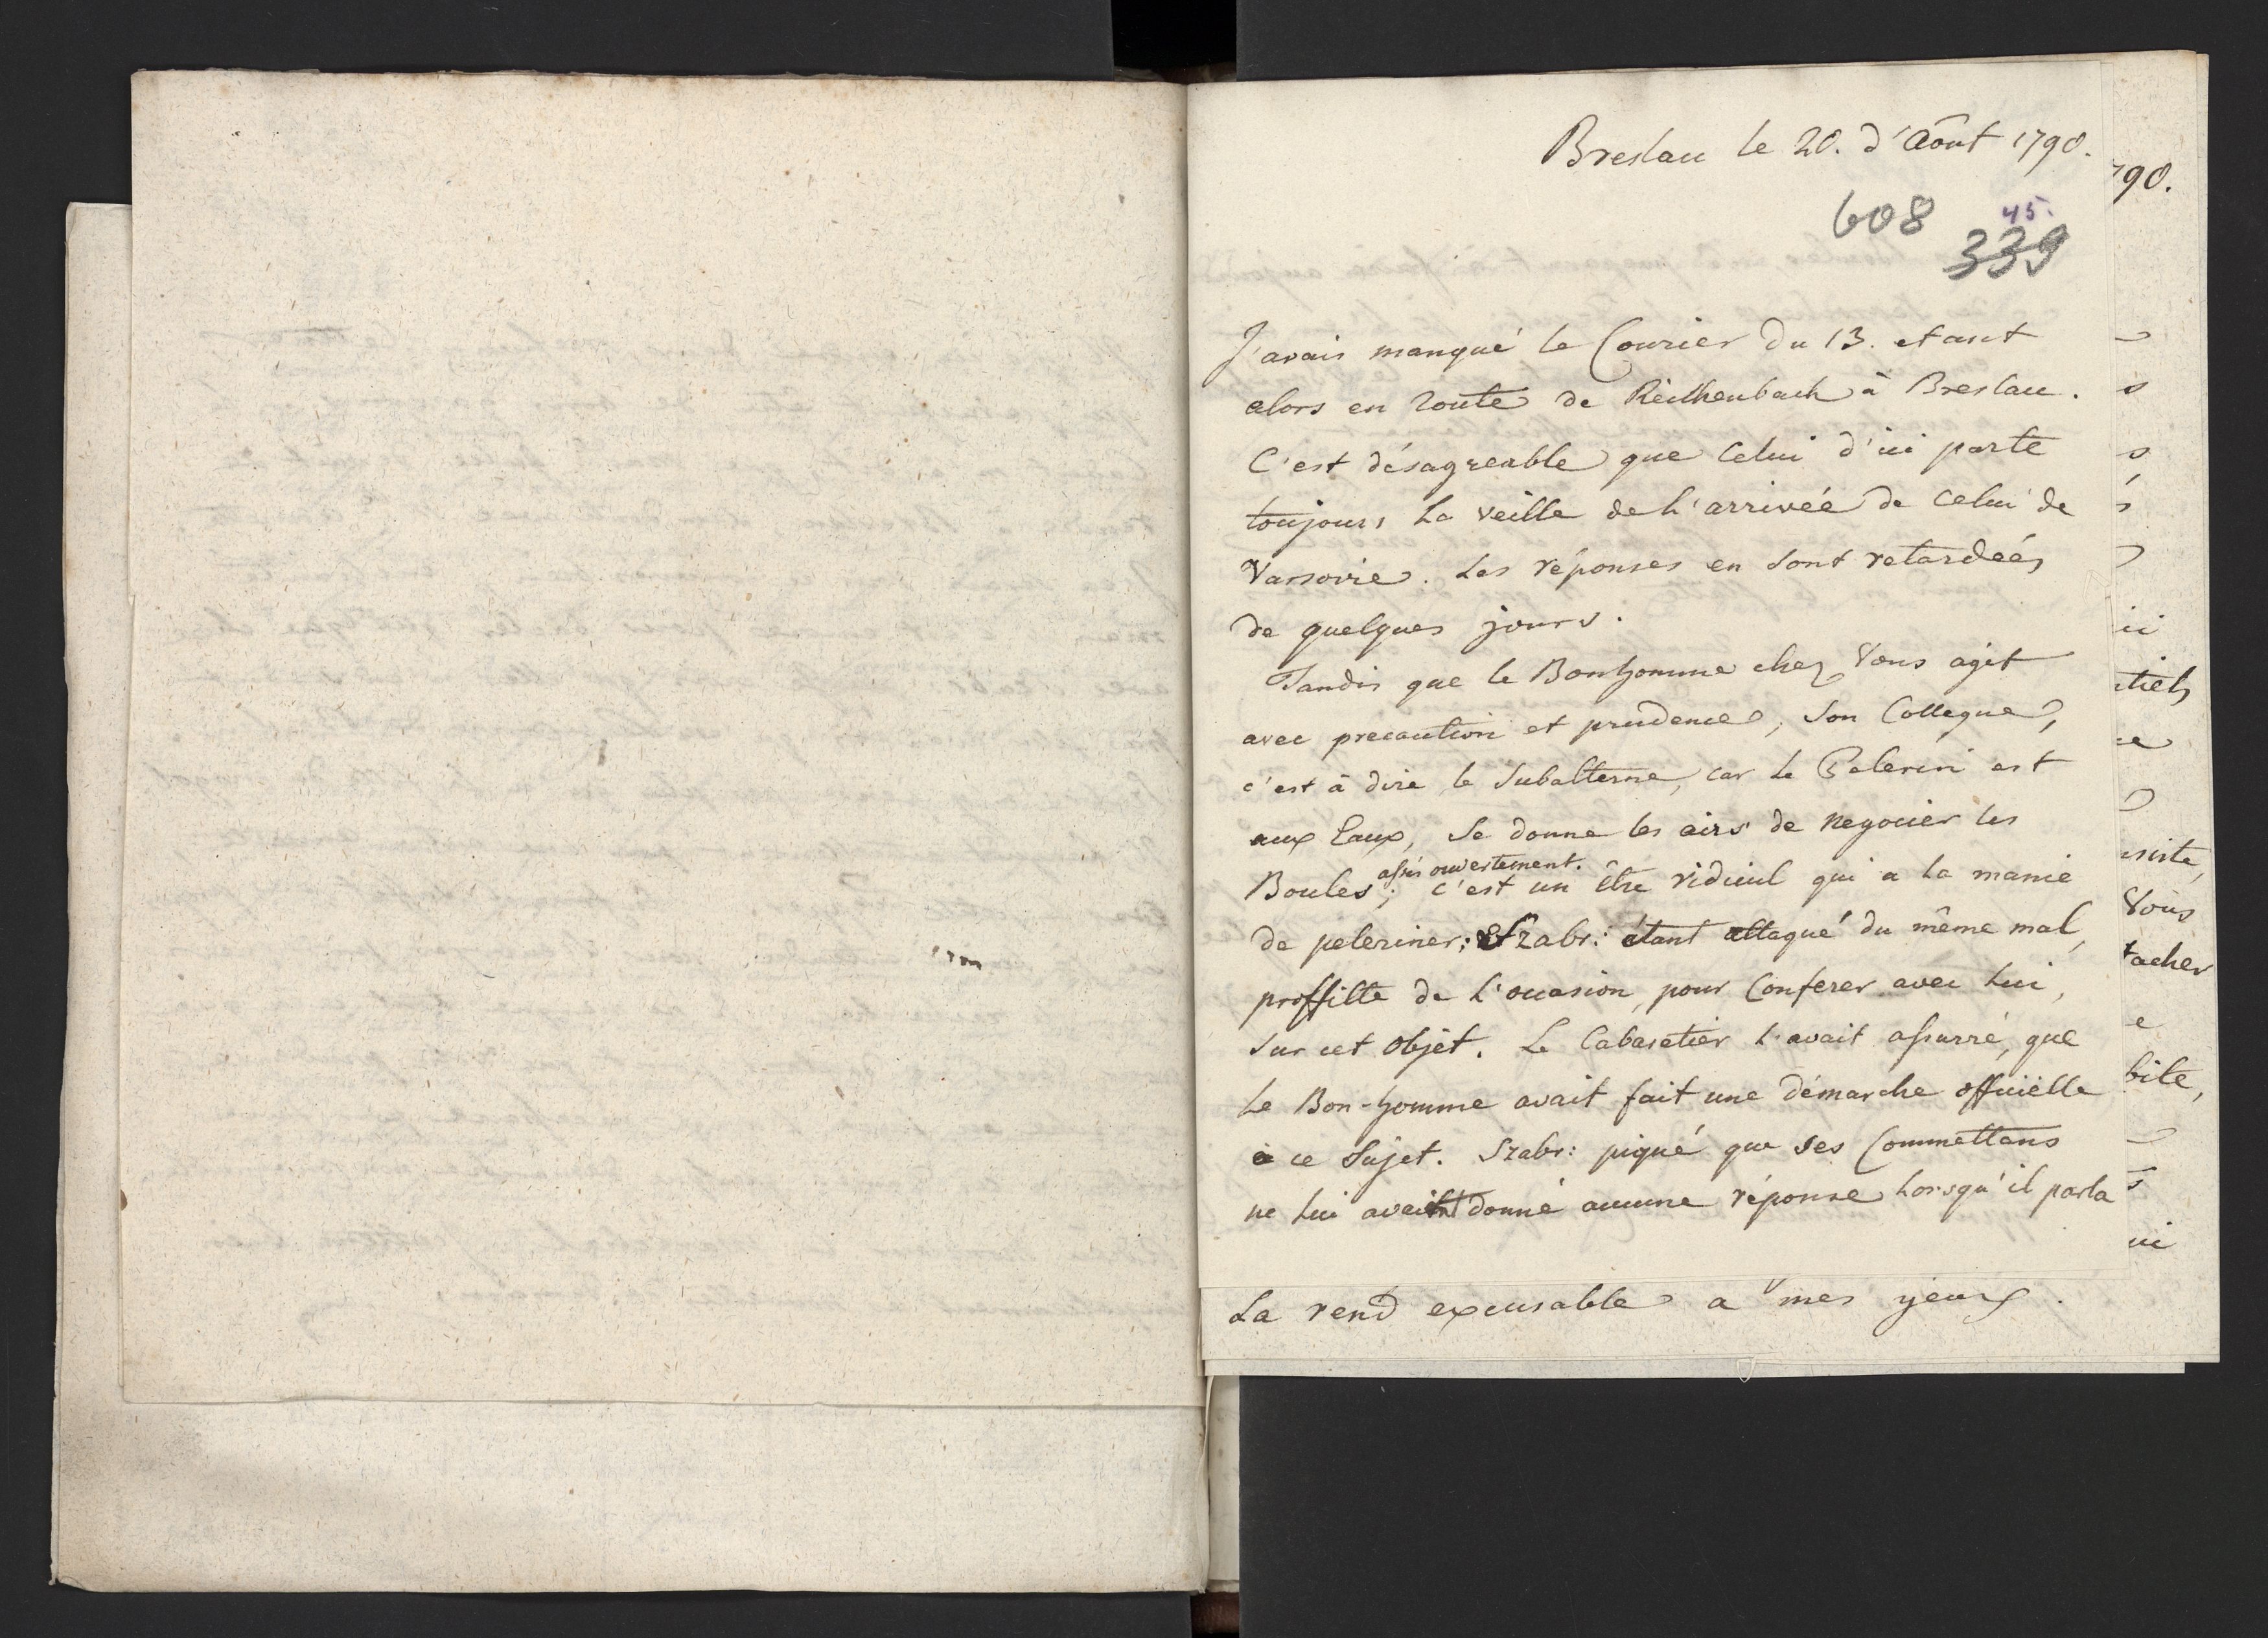 Breslau le 20. d'Août 1790.
608
45.
339
J'avais manqué le Courier du 13. etant
alors en route de Reichenbach à Breslau.
C'est désagreable que celui d'ici parte
toujours la veille de l'arrivée de celui de
Varsovie. Les réponses en sont retardées
de quelques jours.
Tandis que le Bonhomme chez Vous agit
avec precaution et prudence, son Collegue,
c'est à dire le Subalterne, car le Pelerin est
aux Eaux, se donne les airs de negocier les
assés ouvertement.
Boules; c'est un être ridicul qui a la manie
de peleriner; Szabr: étant attaqué du même mal,
proffitte de l'occasion, pour Conferer avec lui,
sur cet objèt. Le Cabaretier l'avait assurré, que
le Bon-homme avait fait une démarche officiëlle
à ce sujet. Szabr: piqué que ses Committans
ne lui avait donné aucune réponse lorsqu'il parla
La rend excusable a mes yeux.
790.
ici
tiels
siste,
Vous
tacher
bite,